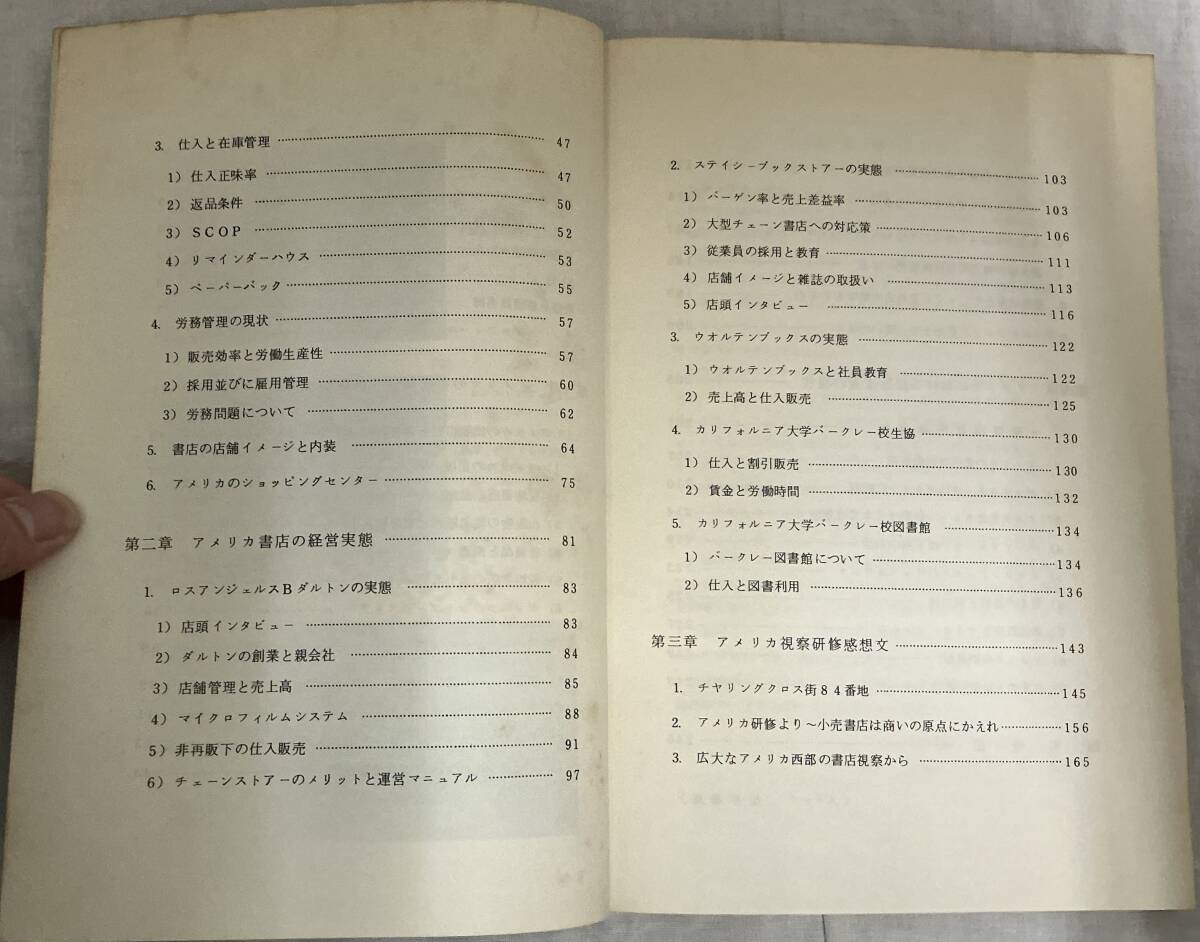 3. 仕入と在庫管理 …… 47
1) 仕入正味率 …… 47
2) 返品条件 …… 50
3) SCOP …… 52
4) リマインダーハウス …… 53
5) ペーパーバック …… 55
4. 労務管理の現状 …… 57
1) 販売効率と労働生産性 …… 57
2) 採用並びに雇用管理 …… 60
3) 労務問題について …… 62
5. 書店の店舗イメージと内装 …… 64
6. アメリカのショッピングセンター …… 75
第二章 アメリカ書店の経営実態 …… 81
1. ロスアンジェルスBダルトンの実態 …… 83
1) 店頭インタビュー …… 83
2) ダルトンの創業と親会社 …… 84
3) 店舗管理と売上高 …… 85
4) マイクロフィルムシステム …… 88
5) 非再販下の仕入販売 …… 91
6) チェーンストアーのメリットと運営マニュアル …… 97
2. ステイシーブックストアーの実態 …… 103
1) バーゲン率と売上差益率 …… 103
2) 大型チェーン書店への対応策 …… 106
3) 従業員の採用と教育 …… 111
4) 店舗イメージと雑誌の取扱い …… 113
5) 店頭インタビュー …… 116
3. ウオルテンブックスの実態 …… 122
1) ウオルテンブックスと社員教育 …… 122
2) 売上高と仕入販売 …… 125
4. カリフォルニア大学バークレー校生協 …… 130
1) 仕入と割引販売 …… 130
2) 賃金と労働時間 …… 132
5. カリフォルニア大学バークレー校図書館 …… 134
1) バークレー図書館について …… 134
2) 仕入と図書利用 …… 136
第三章 アメリカ視察研修感想文 …… 143
1. チヤリングクロス街84番地 …… 145
2. アメリカ研修より〜小売書店は商いの原点にかえれ …… 156
3. 広大なアメリカ西部の書店視察から …… 165